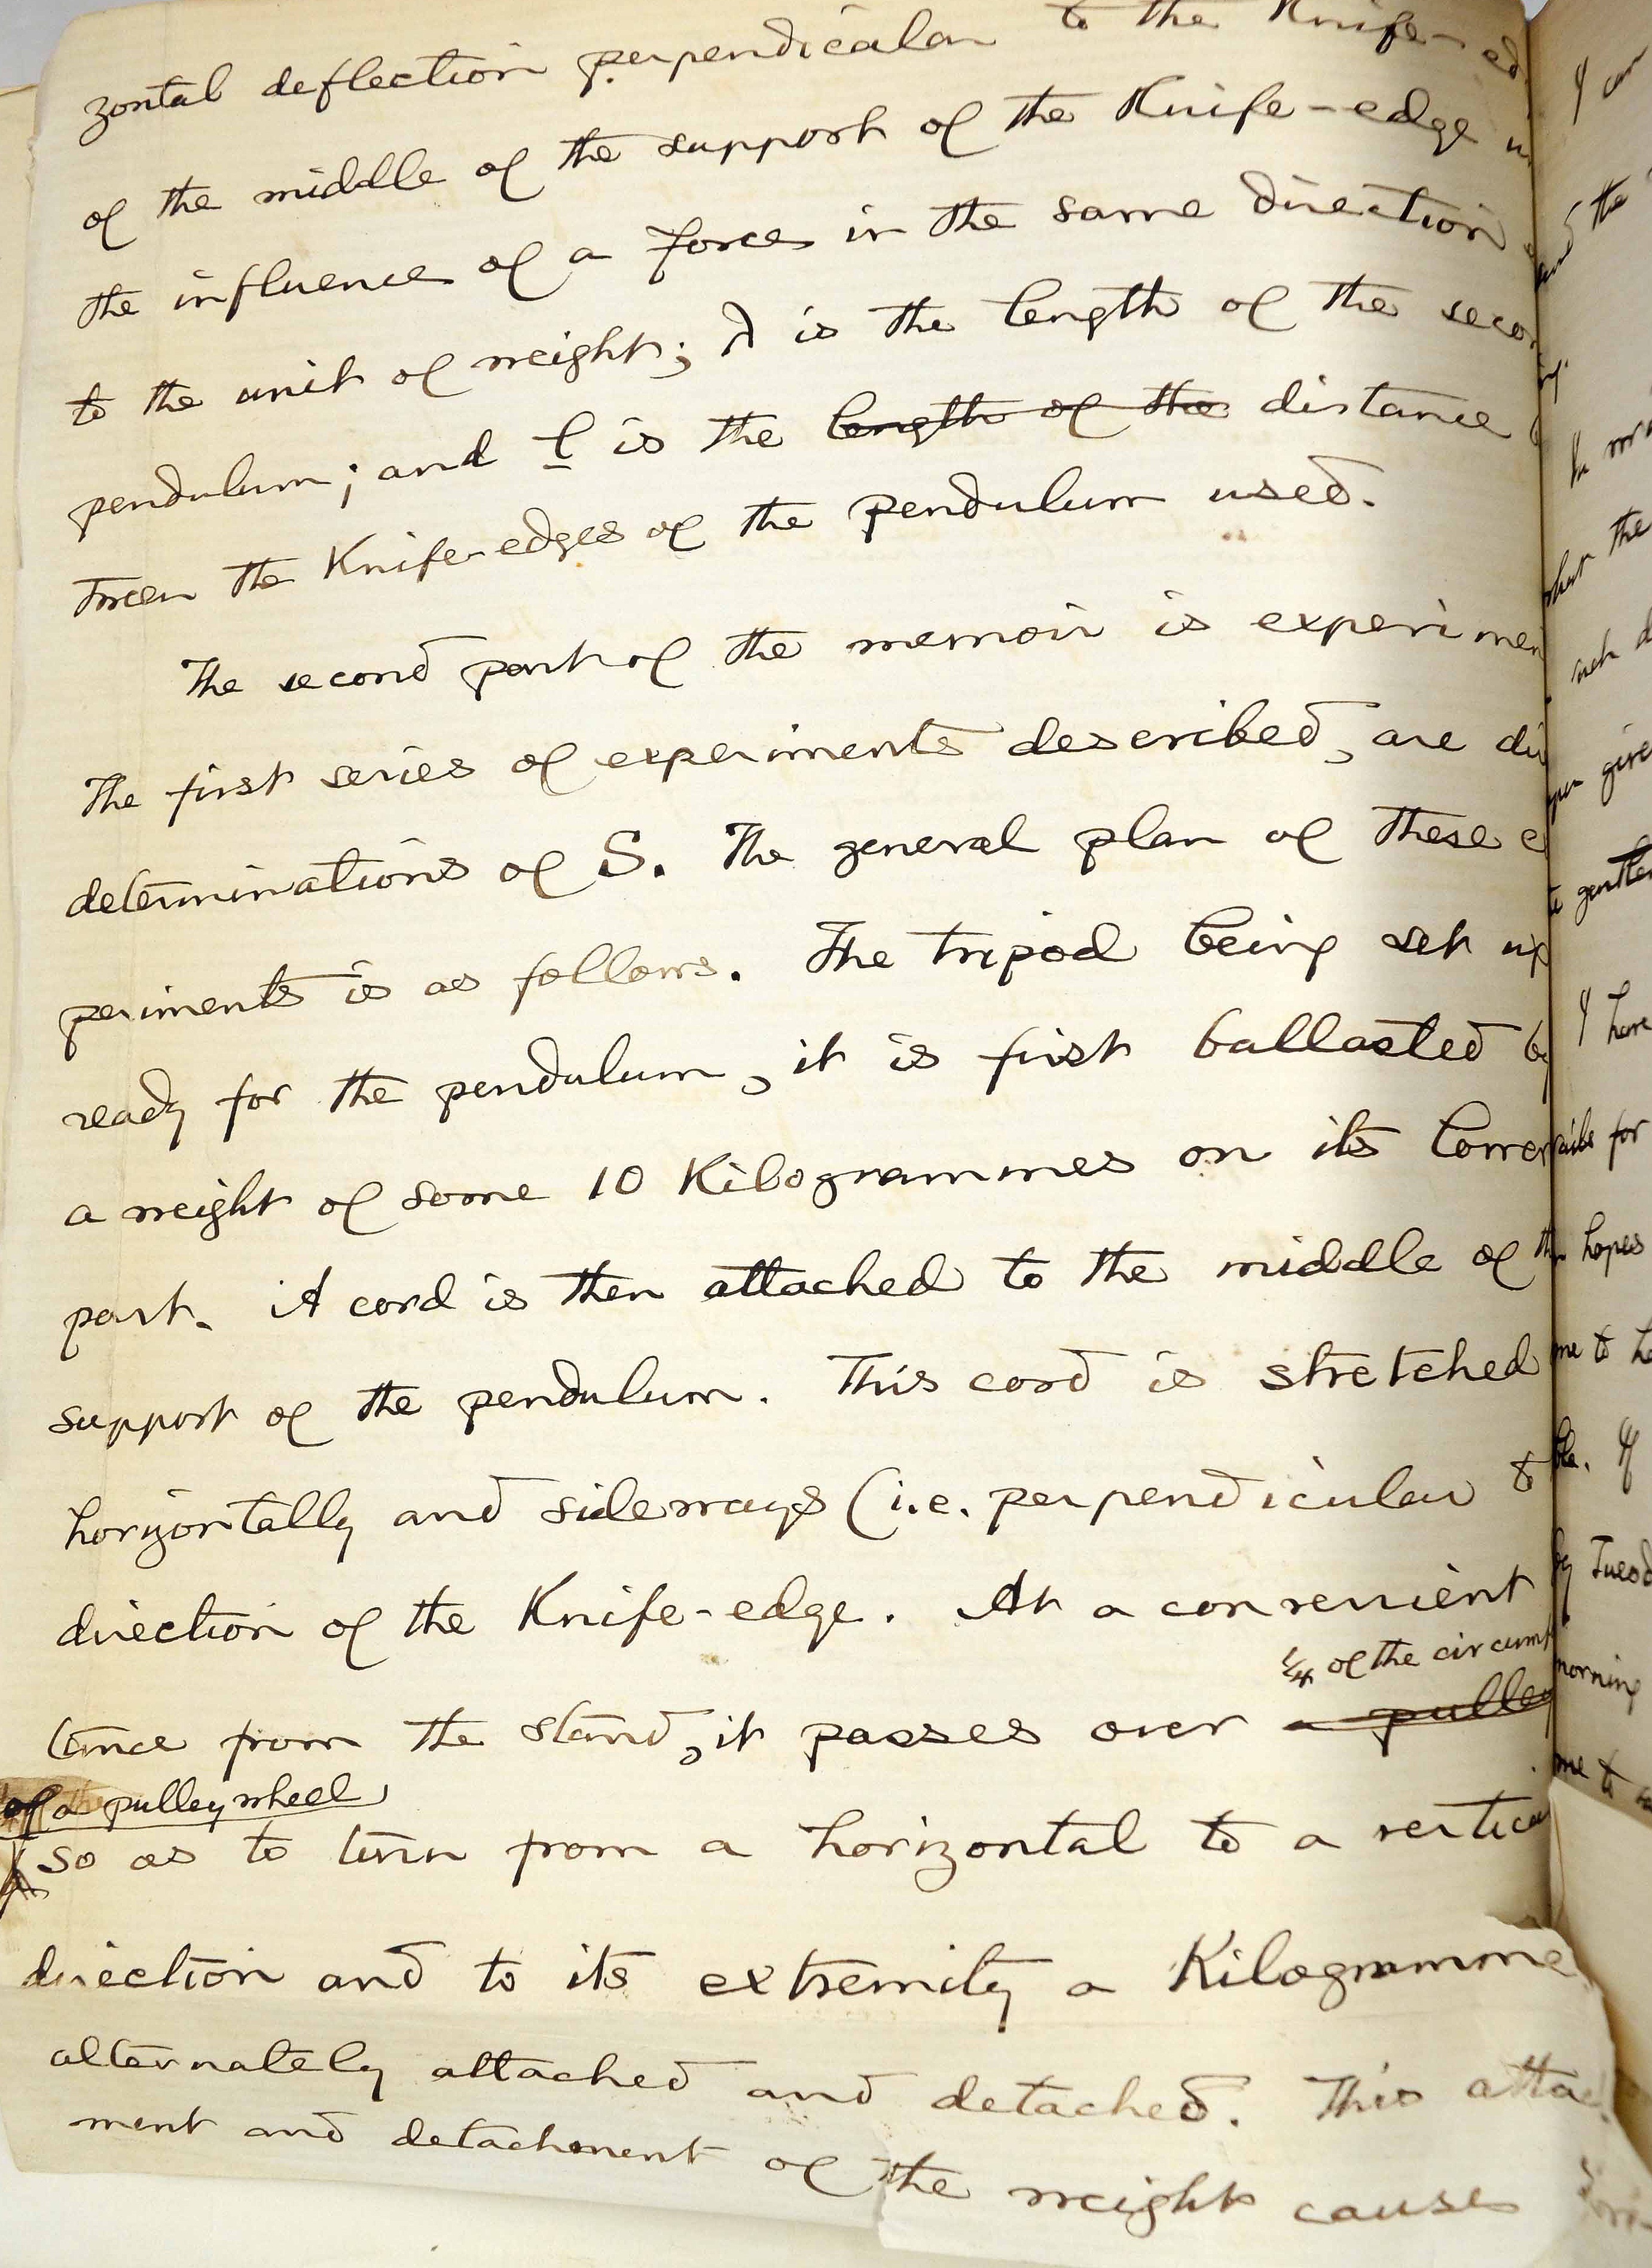 zontal deflection perpendicular to the Knife-ed
of the middle of the support of the Knife-edge
the influence of a force in the same direction
to the unit of weight; λ is the length of the seco
pendulum; and l is the length of the distance
tween the Knife-edges of the pendulum used.
The second part of the memoir is experimen
The first series of experiments described, are
determinations of S. The general plan of these
periments is as follows. The tripod being set up
ready for the pendulum, it is first ballasted by
a weight of some 10 Kilogrammes on its lower
part. A cord is then attached to the middle of
support of the pendulum. This cord is stretched
horizontally and sideways (i.e. perpendicular to
direction of the Knife-edge. At a convenient
1/4 of the circumf
tance from the stand, it passes over a pulley
of a pulley wheel
so as to turn from a horizontal to a vertical
direction and to its extremity a Kilogramme
alternately attached and detached. This attac
ment and detachment of the weight causes
I can
the
what the
give
gentle
I have
for
hopes
me to
If
by Tuesd
morning
me to